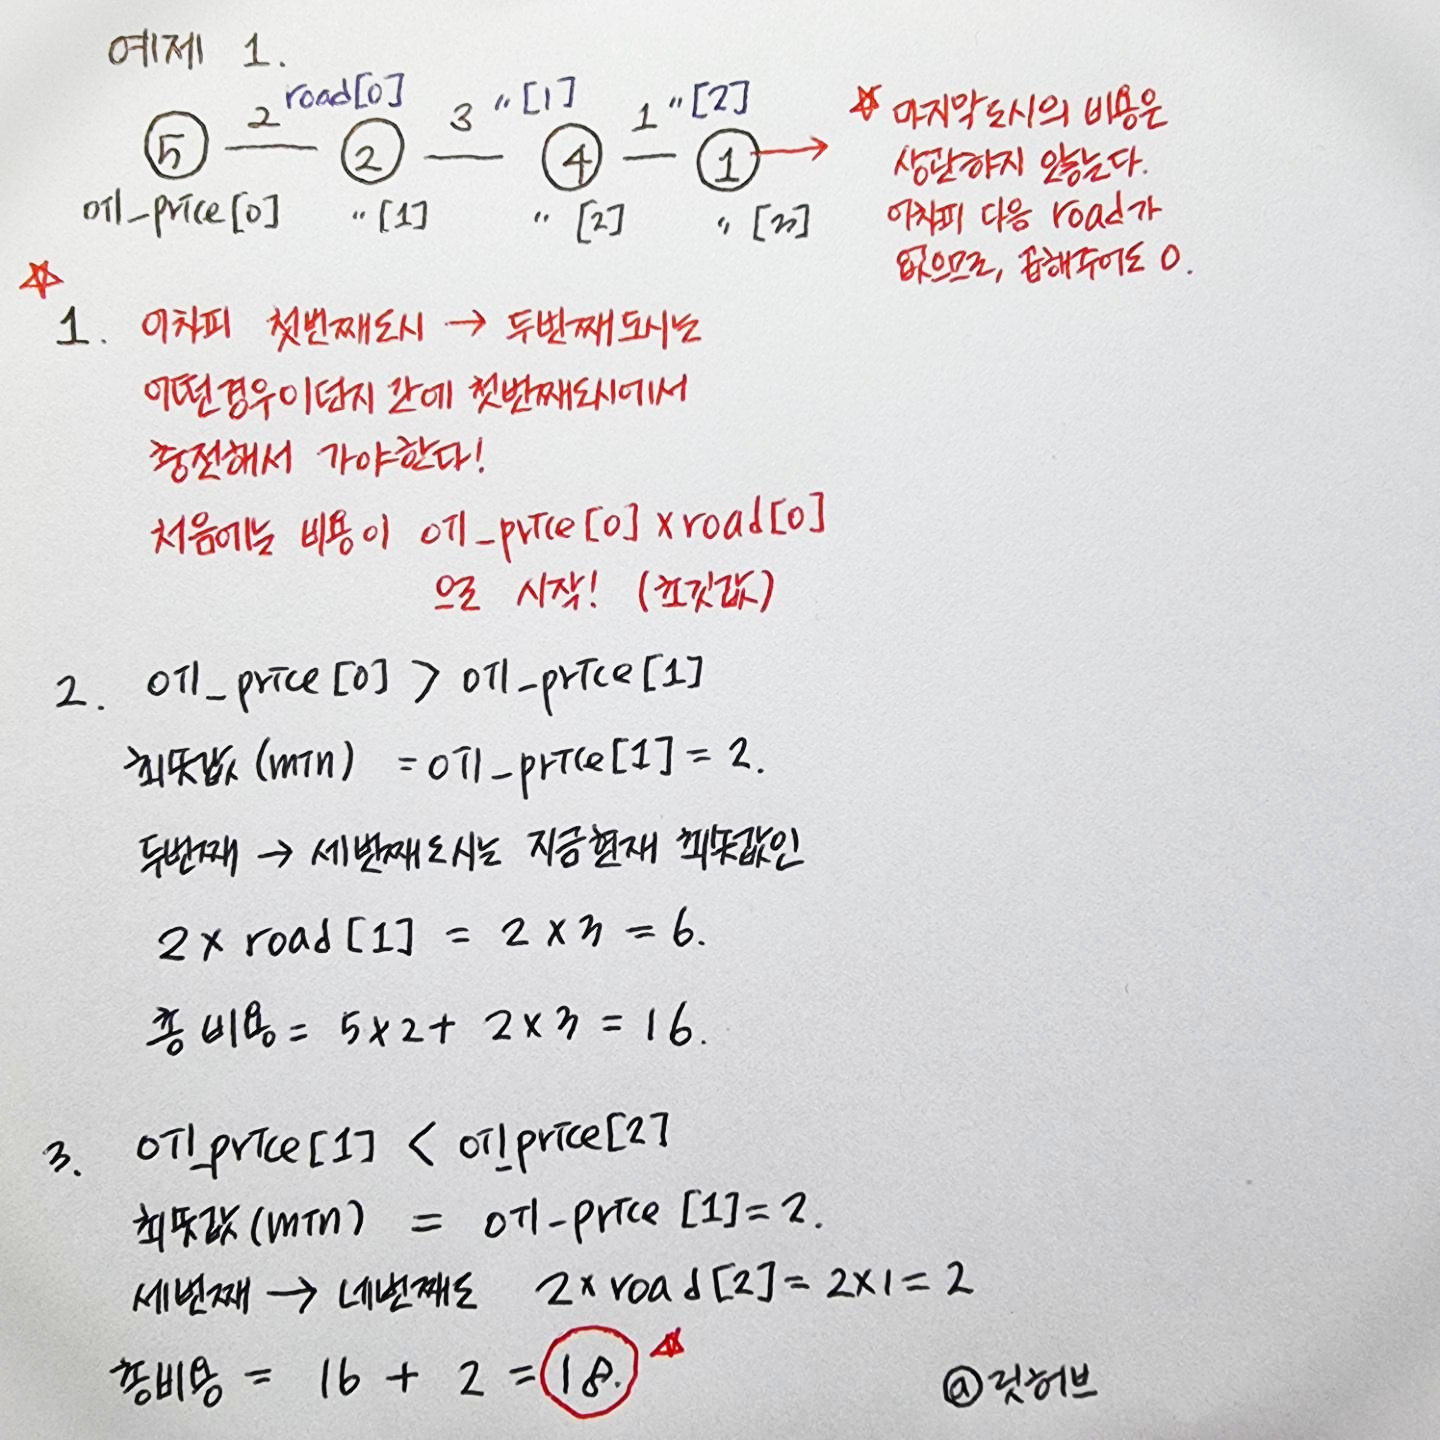 예제 1.
2 road[0] 3 〃[1] 1 〃[2]
5 2 4 1
oil_price[0] 〃[1] 〃[2] 〃[3]
마지막도시의 비용은
상관하지 않는다.
어차피 다음 road가
없으므로, 곱해주어도 0.
1. 어차피 첫번째도시 → 두번째도시는
어떤경우이던지 간에 첫번째도시에서
충전해서 가야한다!
처음에는 비용이 oil_price[0] x road[0]
으로 시작! (초깃값)
2. oil_price[0] > oil_price[1]
최솟값(min) = oil_price[1] = 2.
두번째 → 세번째도시는 지금현재 최솟값인
2 x road[1] = 2 x 3 = 6.
총 비용 = 5 x 2 + 2 x 3 = 16.
3. oil_price[1] < oil_price[2]
최솟값(min) = oil_price [1] = 2.
세번째 → 네번째도 2 x road[2] = 2 x 1 = 2
총비용 = 16 + 2 = 18.
@릿허브